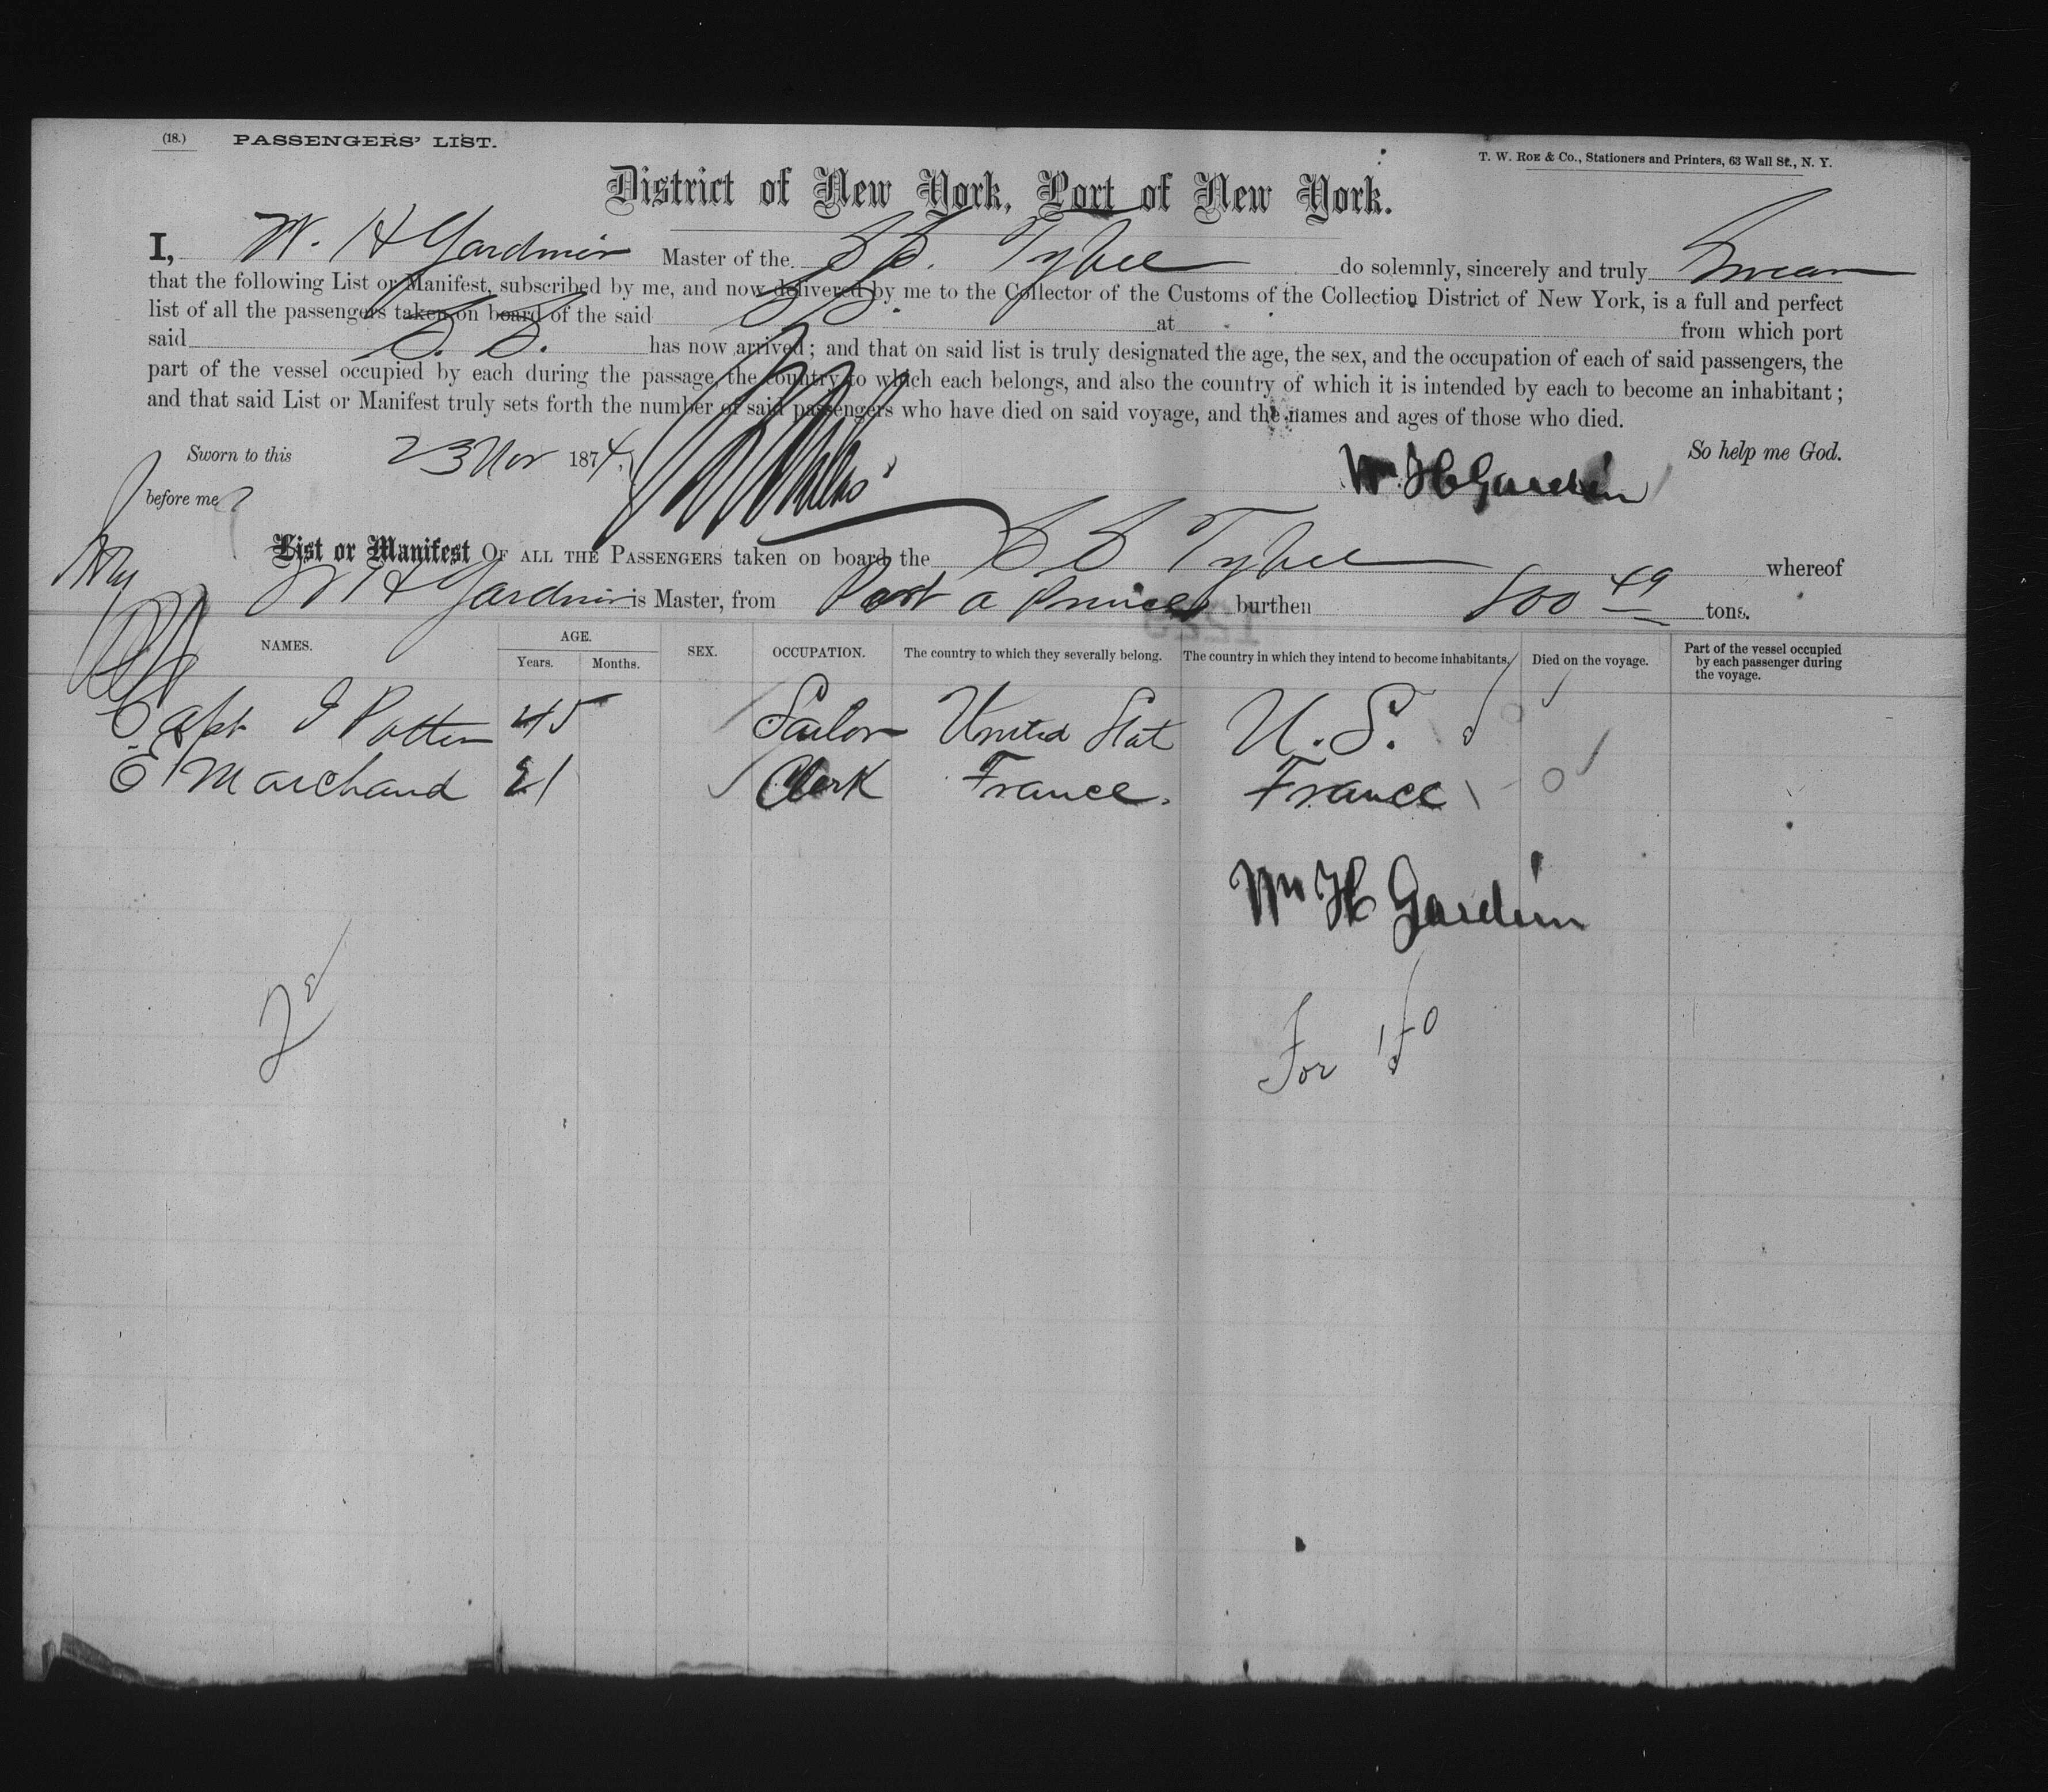 (18.) PASSENGERS' LIST.
T. W. ROE & Co., Stationers and Printers, 63 Wall St., N. Y.
District of New York, Port of New York.
I, W. H Gardner Master of the SS. Tybee do solemnly, sincerely and truly Swear
that the following List or Manifest, subscribed by me, and now delivered by me to the Collector of the Customs of the Collection District of New York, is a full and perfect
list of all the passengers taken on board of the said SS. at from which port
said S. S. has now arrived; and that on said list is truly designated the age, the sex, and the occupation of each of said passengers, the
part of the vessel occupied by each during the passage, the country to which each belongs, and also the country of which it is intended by each to become an inhabitant;
and that said List or Manifest truly sets forth the number of said passengers who have died on said voyage, and the names and ages of those who died.
Sworn to this 23 Nov 1874. So help me God.
Wm H Gardner
before me
List or Manifest OF ALL THE PASSENGERS taken on board the SS Tybee whereof
W H Gardner is Master, from Port a Prince burthen 800 49 tons.
NAMES. AGE. Years. Months. SEX. OCCUPATION. The country to which they severally belong. The country in which they intend to become inhabitants. Died on the voyage. Part of the vessel occupied by each passenger during the voyage.
Capt J Potter 45 Sailor United Stat U. S.
E Marchand 21 Clerk France. France
Wm H Gardner
For